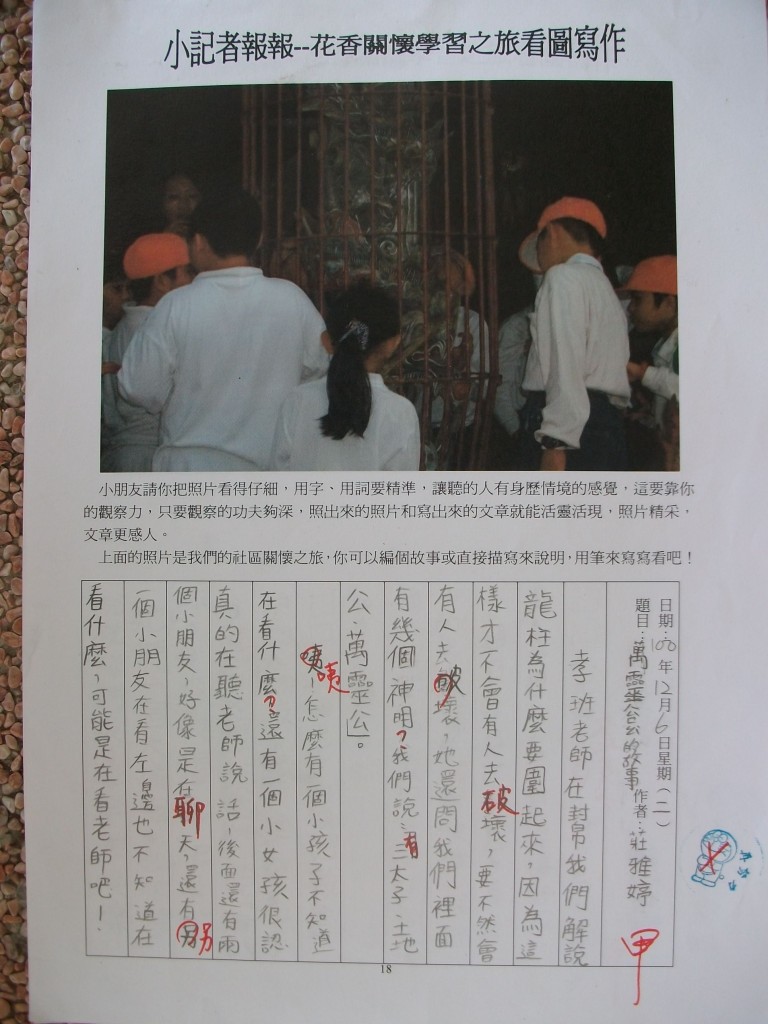 小記者報報--花香關懷學習之旅看圖寫作
小朋友請你把照片看得仔細，用字、用詞要精準，讓聽的人有身歷情境的感覺，這要靠你
的觀察力，只要觀察的功夫夠深，照出來的照片和寫出來的文章就能活靈活現，照片精采，
文章更感人。
上面的照片是我們的社區關懷之旅，你可以編個故事或直接描寫來說明，用筆來寫寫看吧！
日期：100年12月6日星期（二）
題目：萬靈公公的故事 作者：莊雅婷
孝班老師在封帛我們解說
龍柱為什麼要圍起來，因為這
樣才不會有人去破壞，要不然會
有人去破壞，她還問我們裡面
有幾個神明？我們說：有三太子、土地
公、萬靈公」。
咦，怎麼有一個小孩子不知道
在看什麼？還有一個小女孩很認
真的在聽老師說話，後面還有兩
個小朋友，好像是在聊天，還有另
一個小朋友在看左邊也不知道在
看什麼，可能是在看老師吧！
甲
18